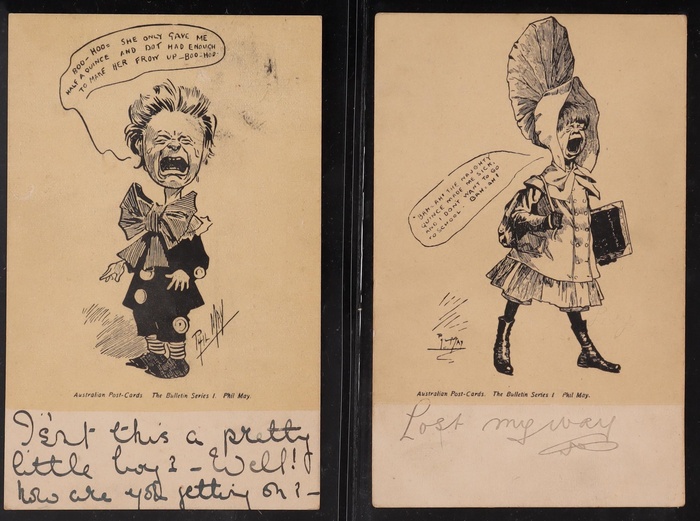 BOO-HOO= SHE ONLY GAVE ME
HALF A QUINCE AND DOT HAD ENOUGH
TO MAKE HER FROW UP_BOO-HOO-
PHIL MAY
Australian Post-Cards  The Bulletin Series I.  Phil May.
Is'nt this a pretty
little boy? - Well!
how are you getting on? -
"BAH-AH! THE NAUGHTY
QUINCE MADE ME SICK.
AND I DON'T WANT TO GO
TO SCHOOL. BAH-AH!
PHIL MAY
Australian Post-Cards.  The Bulletin Series I  Phil May.
Lost my way